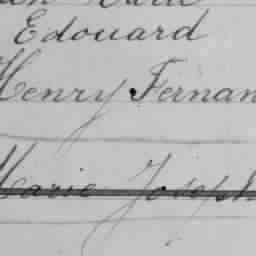 Edouard
Henry Fernan
Marie Joseph